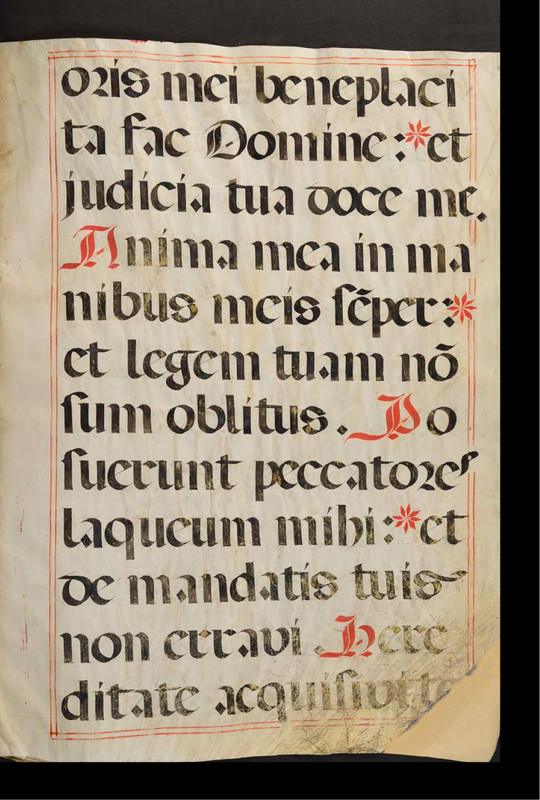 oris mei beneplaci
ta fac Domine :* et
judicia tua doce me.
Anima mea in ma
nibus meis sẽper :*
et legem tuam nõ
sum oblitus. Po
suerunt peccatores
laqueum mihi :* et
de mandatis tuis
non erravi. Here
ditate acquisivi